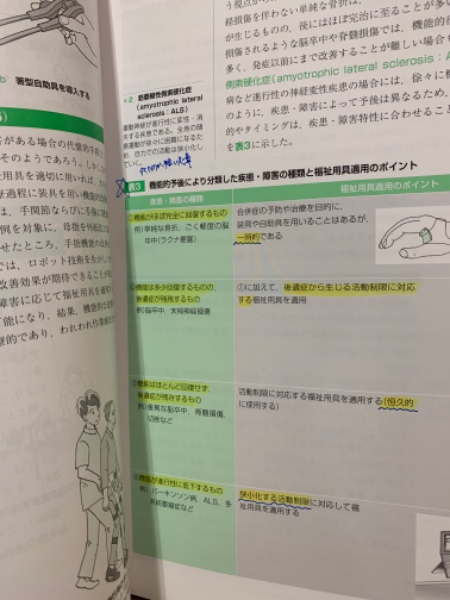 b 箸型自助具を導入する
害がある場合の代償的手段と
そのようであろう。しかし
用具を適切に用いれば，
過程に装具を用いる機会
は，手関節ならびに手指に
例を対象に，母指を外転
せたところ，手指機能の
では，ロボット技術を生かし
改善効果が期待できること
障害に応じて福祉用具を選
可能になり，結果，機能的な
療的であり，われわれ作業
*2 筋萎縮性側索硬化症
(amyotrophic lateral
sclerosis：ALS)
運動神経が進行性に変性・消
失する疾患である。全身の随
意運動が徐々に困難になるた
め，自力での活動は狭小化し
ていく。
う視点から
経損傷を伴わない単純な骨折は，
が生じるものの，後にはほぼ完治に至ることが多
損傷されるような脳卒中や脊髄損傷では，機能的
多く，発症以前にまで改善することが難しい場合
側索硬化症(amyotrophic lateral sclerosis：A
病など進行性の神経変性疾患の場合には，徐々に機
のように，疾患・障害によって予後は異なるため，
的やタイミングは，疾患・障害特性に合わせること
を表3に示した。
表3 機能的予後により分類した疾患・障害の種類と福祉用具適用のポイント
疾患・障害の種類
福祉用具適用のポイント
①機能がほぼ完全に回復するもの
例）単純な骨折，ごく軽度の脳
卒中(ラクナ梗塞)
合併症の予防や治療を目的に，
装具や自助具を用いることはあるが，
一時的である
②機能は多少回復するものの，
後遺症が残存するもの
例）脳卒中，末梢神経損傷
①に加えて，後遺症から生じる活動制限に対応
する福祉用具を適用
③機能はほとんど回復せず，
後遺症が残存するもの
例）重篤な脳卒中，脊髄損傷，
切断など
活動制限に対応する福祉用具を適用する(恒久的
に使用する)
④機能が進行性に低下するもの
例）パーキンソン病，ALS，多
系統萎縮症など
狭小化する活動制限に対応して福
祉用具を適用する